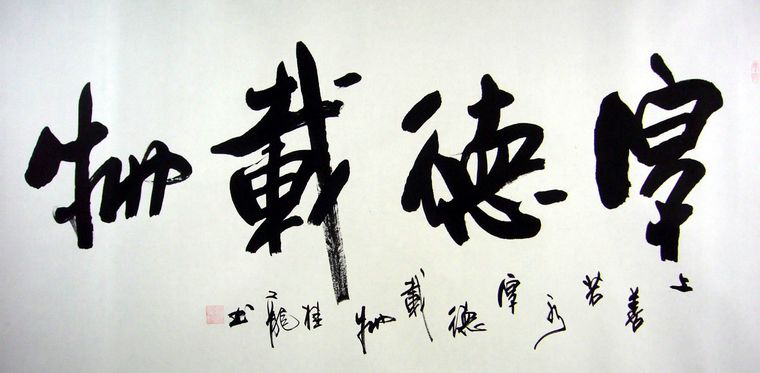 厚德載物
上善若水厚德載物桂龍书